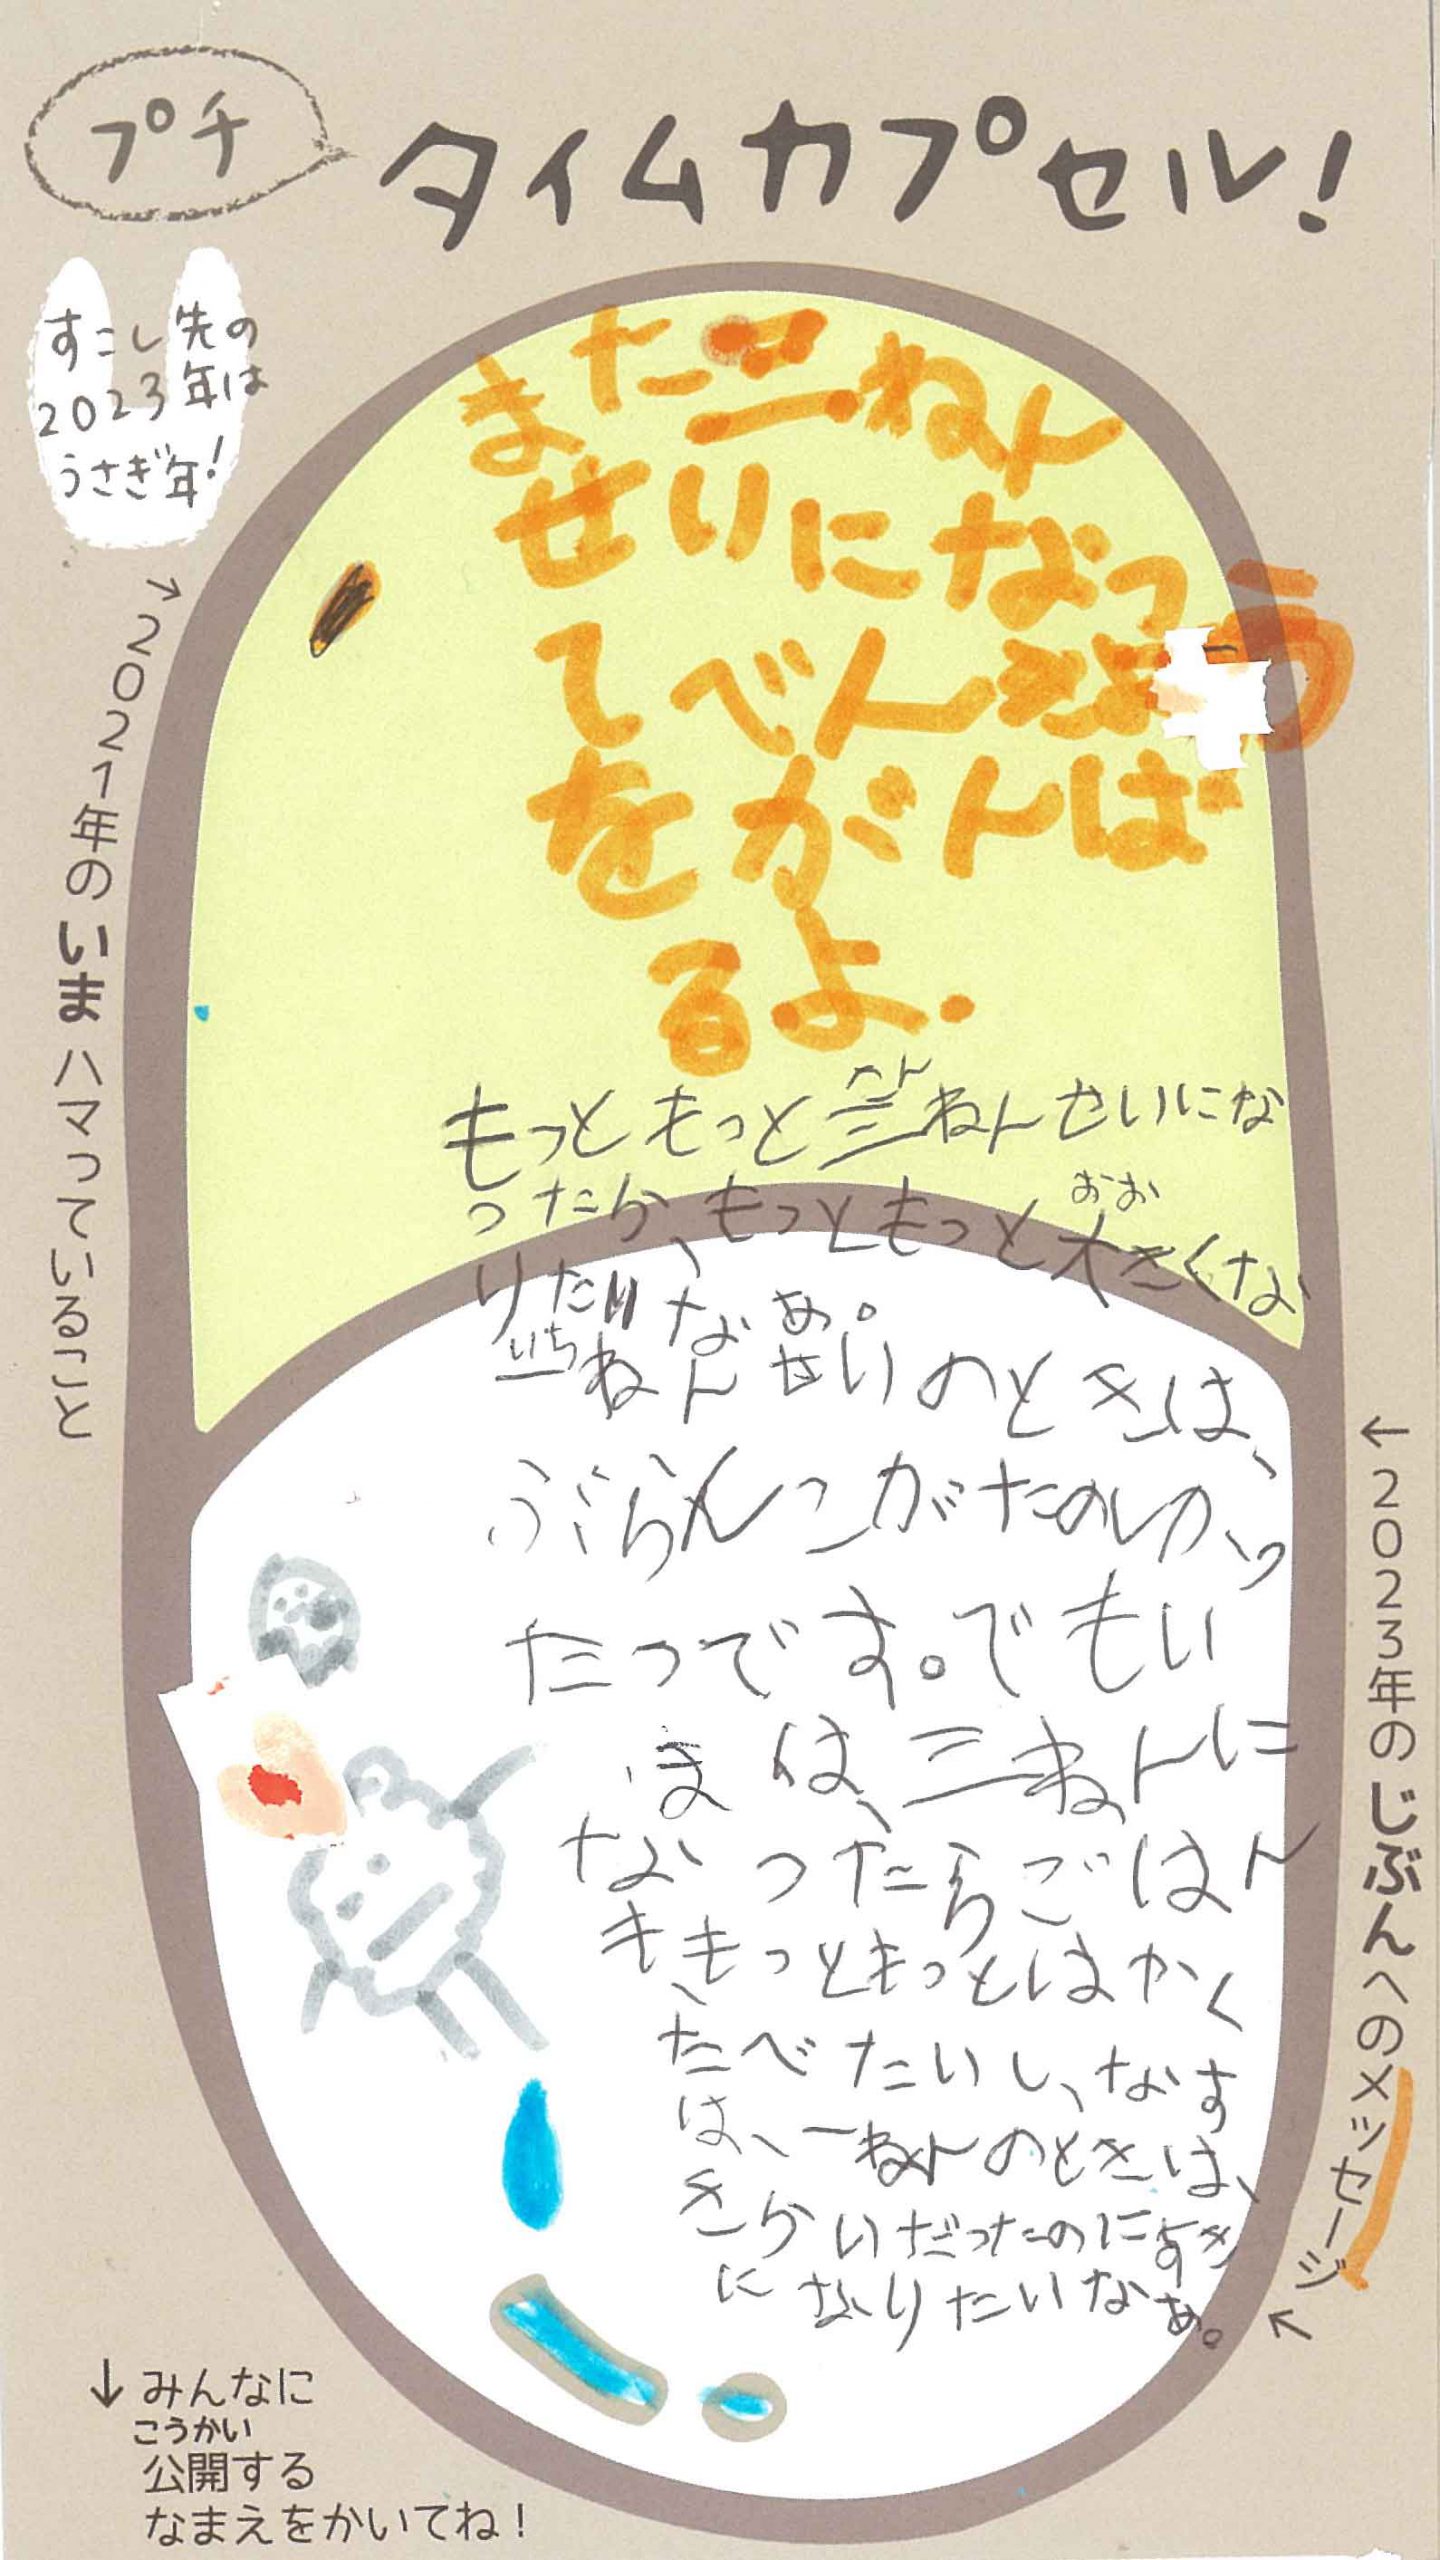 プチ
タイムカプセル!
すこし先の
2023年は
うさぎ年!
→2021年のいまハマっていること
また三ねん
せいになっ
てべんきょう
をがんば
るよ.
もっともっと三ねんせいにな
ったら、もっともっと大きくな
おお
りたいなぁ。
いち
一ねんせいのときは、
ぶらんこがたのしかっ
たつです。でもい
まは、三ねんに
なったらごはん
も、もっともっとはやく
たべたいし、なす
は、一ねんのときは、
きらいだったのにすき
になりたいなぁ。
←2023年のじぶんへのメッセージ
↓みんなに
こうかい
公開する
なまえをかいてね!